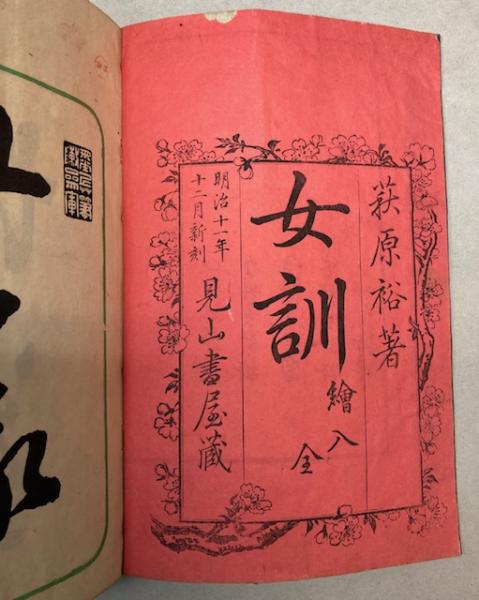 萩原裕著
女訓
繪入
全
明治十一年
十二月新刻
見山書屋藏